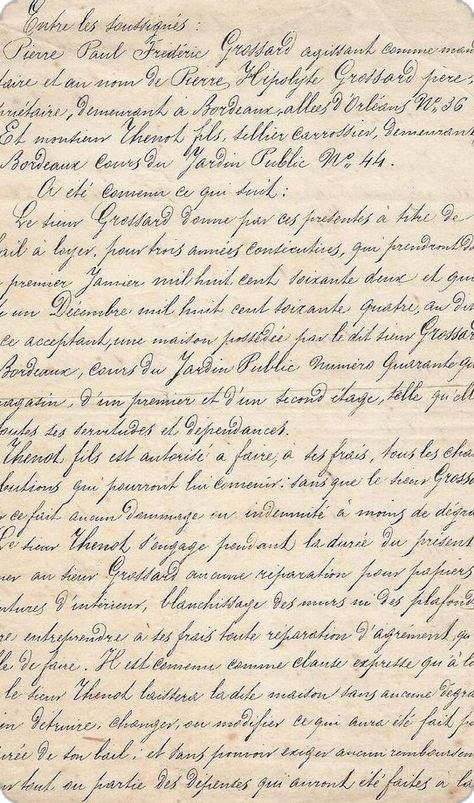 Entre les soussignés :
Pierre Paul Frédéric Grossard agissant comme man
taire et au nom de Pierre Hipolyte Grossard père,
priétaire, demeurant à Bordeaux, allées d'Orléans, No. 36
Et monsieur Thenot fils, sellier carrossier, demeurant
Bordeaux cours du Jardin Public No. 44.
A été convenu ce qui suit :
Le sieur Grossard donne par ces présentes à titre de
bail à loyer, pour trois années consécutives, qui prendront da
premier Janvier mil huit cent soixante deux et qui
un Décembre mil huit cent soixante quatre, au dit
ce acceptant, une maison possédée par le dit sieur Grossar
Bordeaux, cours du Jardin Public numéro quarante qu
magasin, d'un premier et d'un second étage, telle qu'elle
toutes ses servitudes et dépendances.
Thenot fils est autorisé à faire, à ses frais, tous les cha
butions qui pourront lui convenir : sans que le sieur Grossa
ce fait aucun dommage ou indemnité à moins de dégra
Le sieur Thenot s'engage pendant la durée du présent
er au sieur Grossard aucune réparation pour papiers
ntures d'intérieur, blanchissage des murs ni des plafonds
re entreprendre à ses frais toute réparation d'agrément, qu
le de faire. Il est convenu comme clause expresse qu'à l
le sieur Thenot laissera la dite maison sans aucune dégra
in détruire, changer, ou modifier ce qui aura été fait p
urée de son bail ; et sans pouvoir exiger aucun remboursem
tout ou partie des dépenses qui auront été faites à la